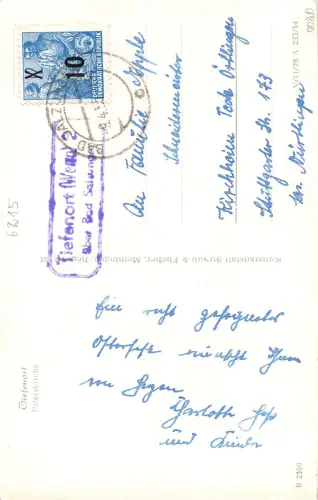 10
DEUTSCHE
DEMOKRATISCHE REPUBLIK
Tiefenort (Werra) 2
über Bad Salzungen
An Familie
Schneidermeister
Kirchheim Teck Ötlingen
Stuttgarter Str. 173
Kr. Nürtingen
Ein recht gesegnetes
Osterfest wünscht Ihnen
von Herzen
Charlotte
und Kinder
Tiefenort
Peterskirche
Kunstanstalt Straub & Fischer, Meiningen
V/11/28 A 233/54
B 2399
6215